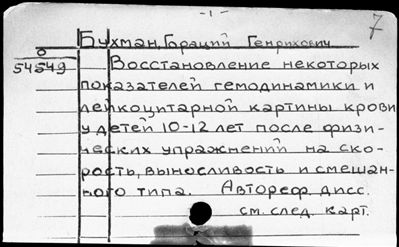 - 1 -
7
Бухман, Гораций Генрихович
о
54549
Восстановление некоторых
показателей гемодинамики и
лейкоцитарной картины крови
у детей 10-12 лет после физи-
ческих упражнений на ско-
рость, выносливость и смешан-
ного типа. Автореф. дисс.
см. след. карт.